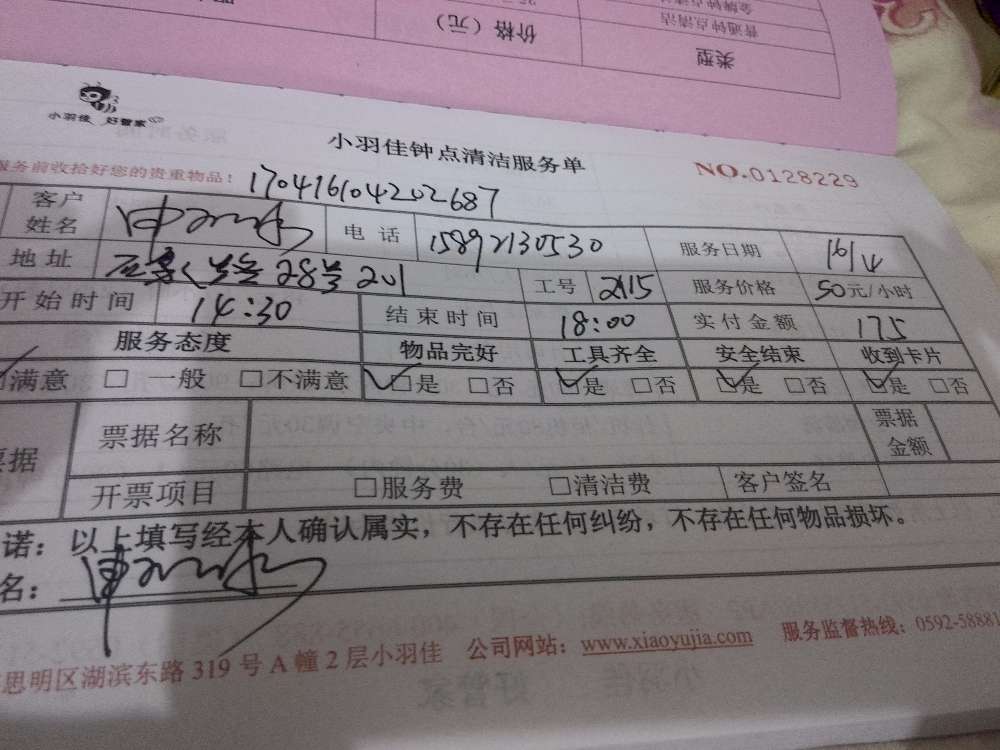 类型
价格（元）
普通钟点清洁
金牌钟点清洁
小羽佳 好管家
小羽佳钟点清洁服务单
NO.0128229
服务前收拾好您的贵重物品：
170416104202687
客户姓名
电话 15892130530
服务日期 16/4
地址 28号201
工号 2115
服务价格 50元/小时
开始时间 14:30
结束时间 18:00
实付金额 175
服务态度 物品完好 工具齐全 安全结束 收到卡片
满意 □ 一般 □不满意 □是 □否 □是 □否 □是 □否 □是 □否
票据名称
票据金额
据
开票项目 □服务费 □清洁费 客户签名
诺：以上填写经本人确认属实，不存在任何纠纷，不存在任何物品损坏。
名：
思明区湖滨东路319号A幢2层小羽佳 公司网站：www.xiaoyujia.com 服务监督热线：0592-58881